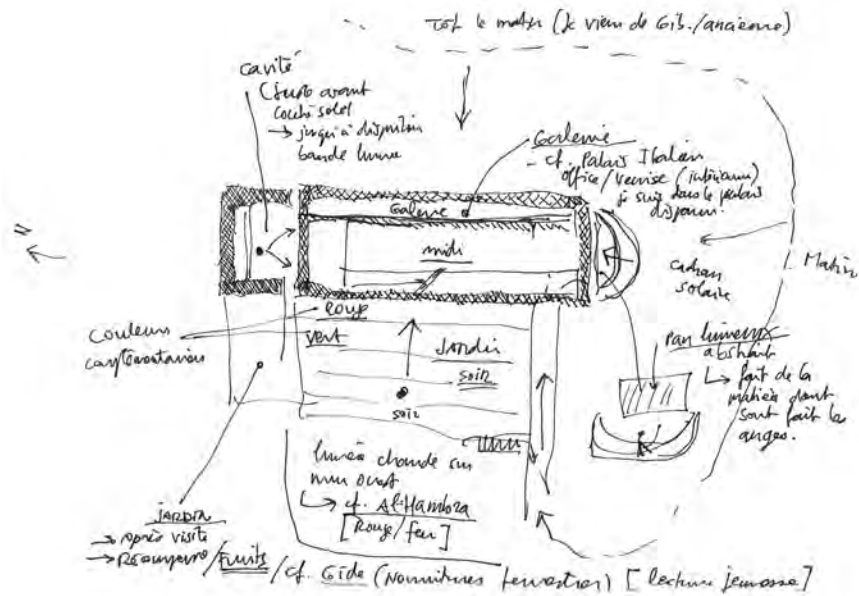 Tôt le matin (je viens de Gib./ancienne)
cavité
(juste avant
couché soleil
→ jusqu'à disparition
bande lumre
Galerie
- cf. Palais Italien
office/Venise (intérieur)
je suis dans le palais
disparu.
Galerie
midi
N
Matin
cadran
solaire
rouge
vert
Couleurs
complémentaires
Jardin
soir
soir
Pan lumineux
abstrait
↳ fait de la
matière dont
sont fait les
anges.
lumière chaude sur
mur ouest
↳ cf. Al-Hambra
[Rouge/feu]
JARDIN
→ après visite
→ Récompense/Fruits/cf. Gide (Nourritures terrestres) [lecture jeunesse]